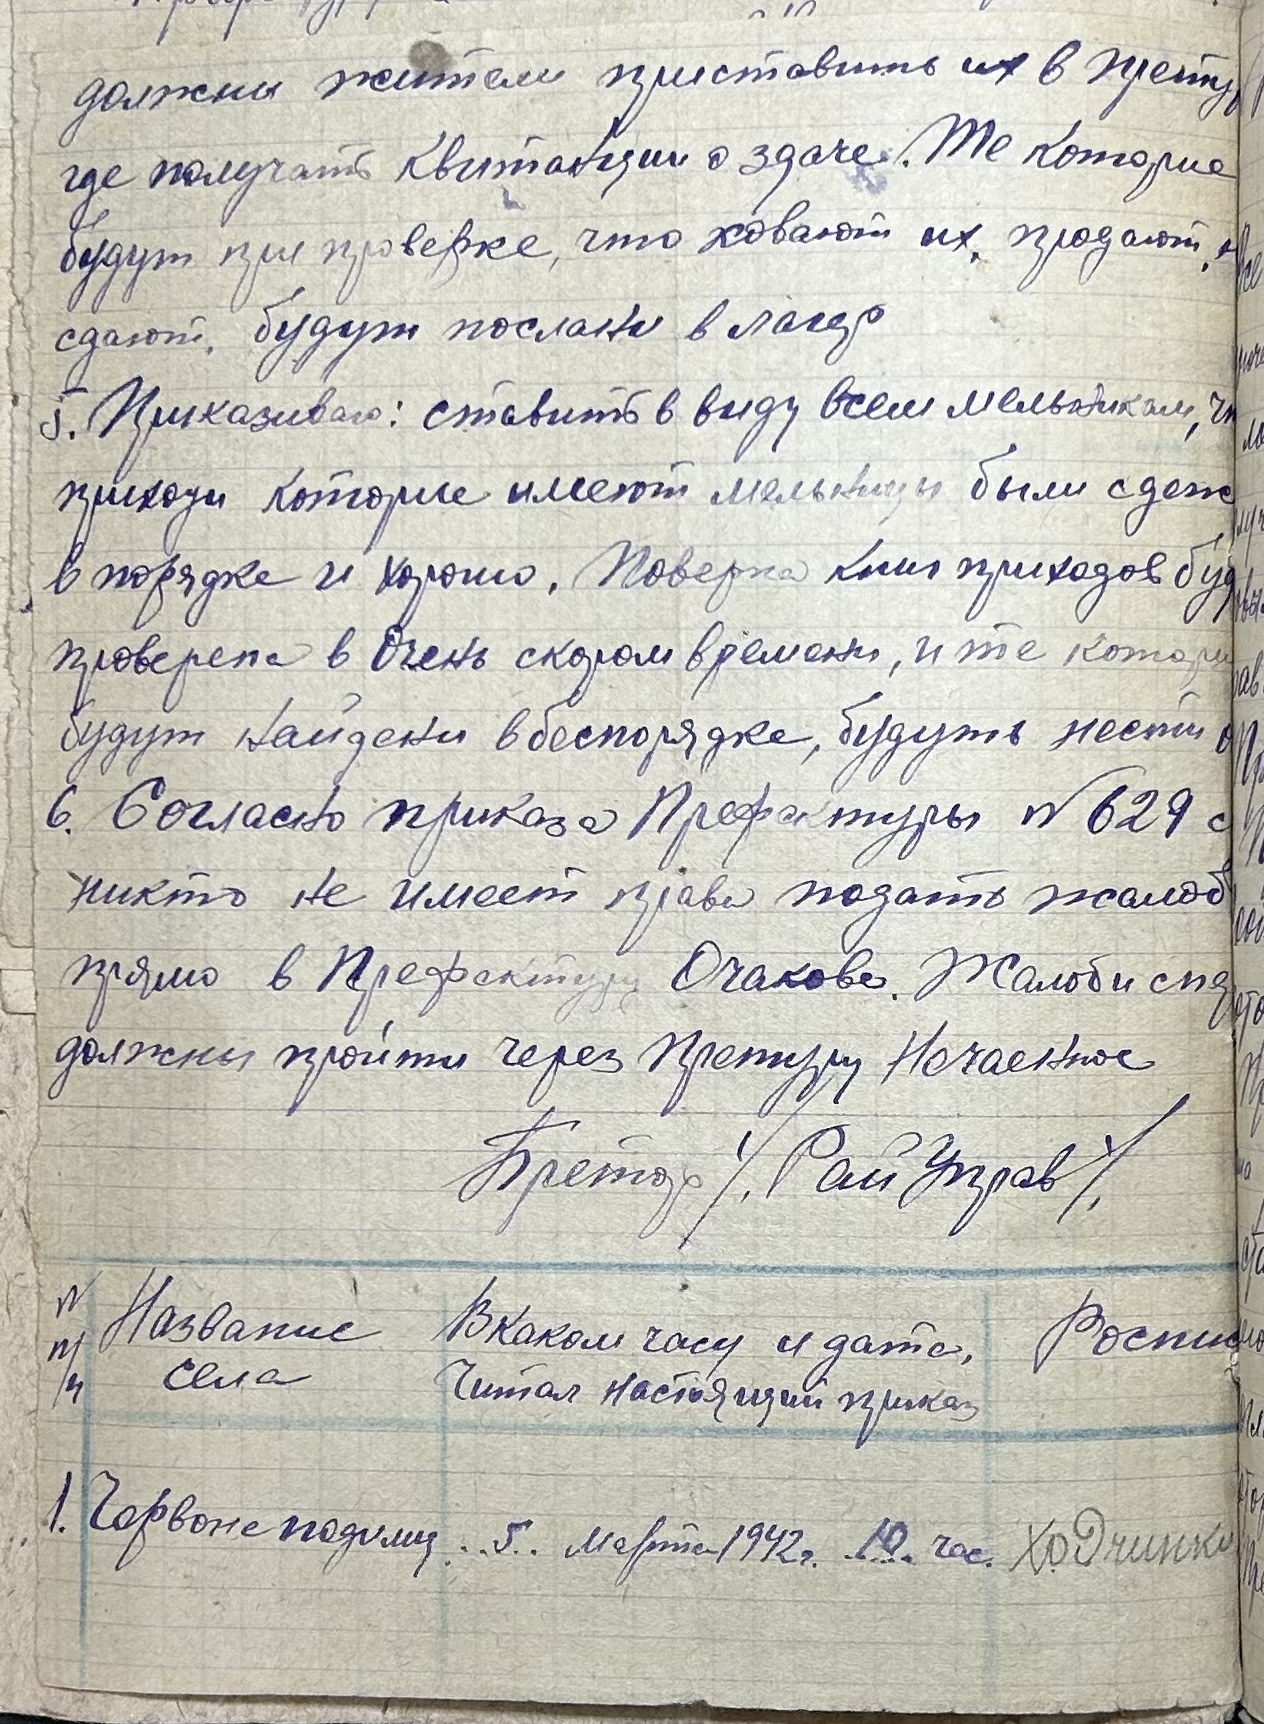 должни жители приставить их в прету
где получать квитанции о здаче. Те которие
будут при проверке, что ховают их, продают,
сдают, будут послани в лагер
5. Приказиваю: ставить в виду всем мельникам, чт
приходи которие имеют мельници были сдеж
в порядке и хорошо. Поверка книг приходов буд
проверена в очень скором времени, и те котори
будут найдени в беспорядке, будуть нести о
6. Согласно приказа Префектуры № 629 с
никто не имеет права подать жалоб
прямо в Префектуру Очакова. Жалоби
должны пройти через претуру Нечаенное
Претор /. РайУправ /.
№ п/п Название села В каком часу и дата, Роспис
Читал настоящий приказ
1. Червоне подилля ..5.. марта 1942 г. ..10.. час.